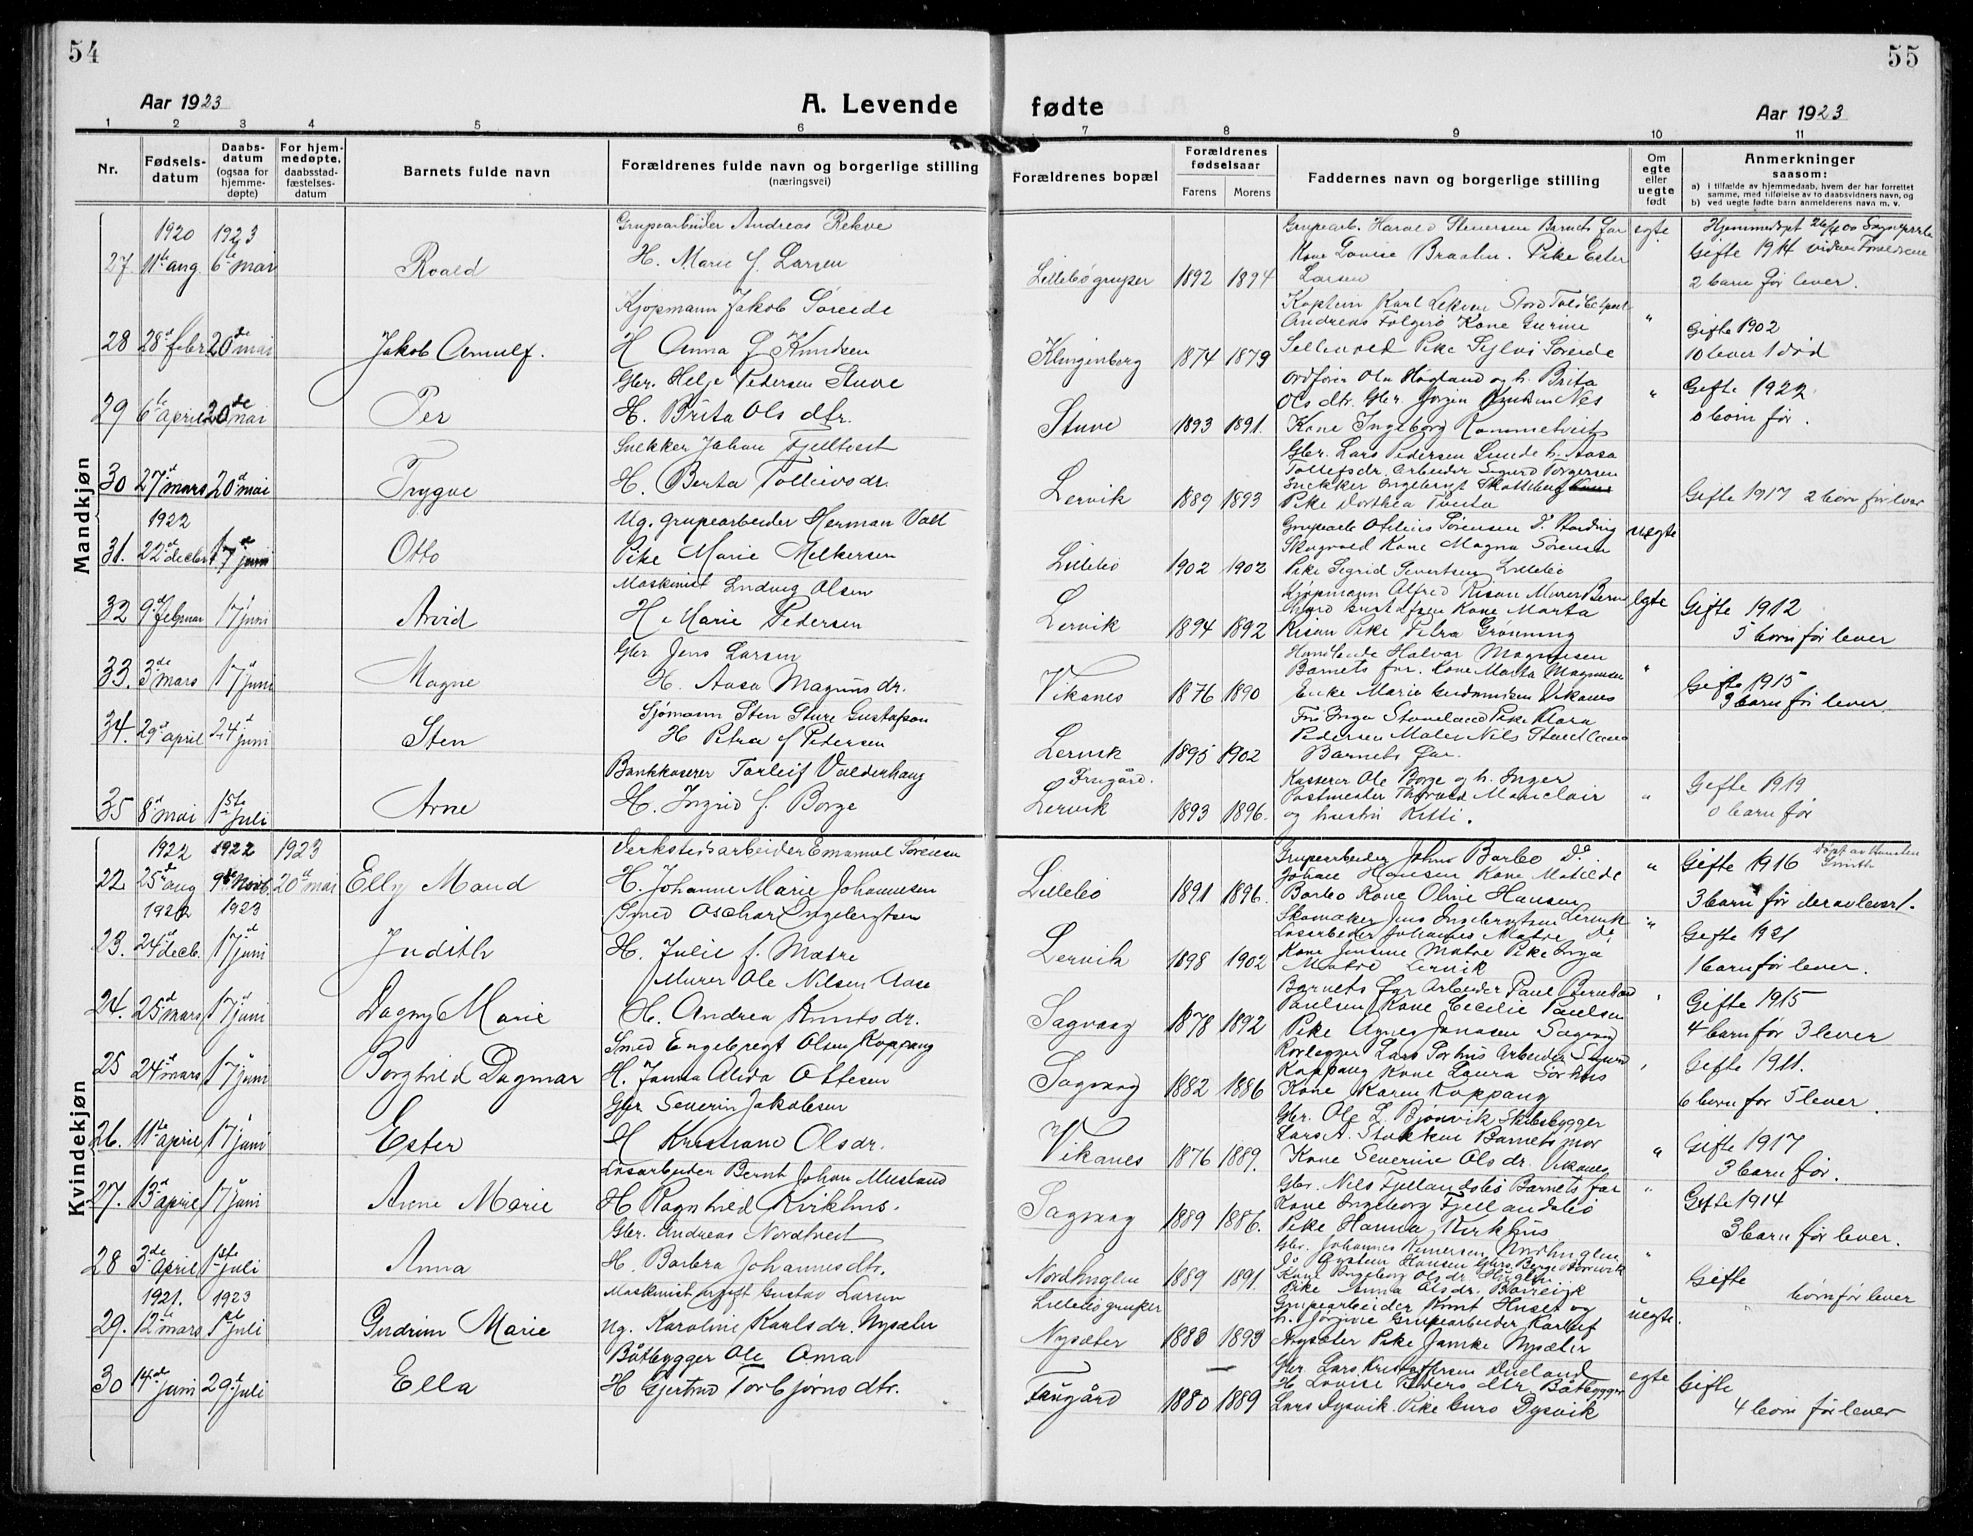 54
55
Aar 1923
A. Levende fødte
Aar 1923
1 2 3 4 5 6 7 8 9 10 11
Nr.
Fødselsdatum
Daabsdatum (ogsaa for hjemmedøpte)
For hjemmedøpte, daabsstadfæstelsesdatum
Barnets fulde navn
Forældrenes fulde navn og borgerlige stilling (næringsvei)
Forældrenes bopæl
Forældrenes fødselsaar
Farens Morens
Faddernes navn og borgerlige stilling
Om egte eller uegte født
Anmerkninger saasom:
a) i tilfælde av hjemmedaab, hvem der har forrettet samme, med tilføielse av to daabsvidners navn, og
b) ved uegte fødte barn anmelderens navn m. v.
Mandkjøn
1920 1923 Grupearbeider Andreas Rekve
27 11te aug 6te mai Roald H. Marie f. Larsen
Lillebø gruper 1892 1894
Grupearb. Harald Stenersen Barnets far
Kone Lovise Braaten. Pike Ester
Larsen
egte
Gifte 1914
2 barn før lever.
Kjøpmann Jakob Søreide
28 28de febr 20de mai Jakob Arnulf. H Anna G Knudsen
Klingenberg 1874 1879
Andreas Folgerø Kone Gurine
Sellevold Pike Sylvi Søreide
"
Gifte 1902
10 lever 1 død
Gbr. Helje Pedersen Stuve
29 6te april 20de mai Per H. Brita Ols dtr.
Stuve 1893 1891.
Ordfører Ola Høgland og h. Brita
Ols dtr. Gbr. Jørgen Nes
Kone Ingeborg
"
Gifte 1922.
0 born før.
Snekker Johan Fjelltveit
30 27de mars 20de mai Trygve H. Berta Tolleivsdr.
Lervik 1889 1893
Gbr. Lars Pedersen Lunde h. Aasa
Tollefsdr. Arbeider Sigurd Torgersen
Pike Dorthea Tveita
Gifte 1917 2 born før lever
1922 Ug. grupearbeider Herman Valt
31. 22de decbr 17de juni Otto Pike Marie Melkersen
Lillebø 1902 1902
Skogvold Kone Magna Sørensen
Pike Sigrid Sivertsen Lillebø
uegte
Maskinist Ludvig Olsen
32 9de februar 17 juni Arvid H. Marie Pedersen
Lervik 1894 1892
Kjøpmann Alfred Risan Murer Bern
Kone Marta
Risan Pike Petra Grønning
egte
Gifte 1912
5 born før lever
Gbr Jens Larsen
33. 3de mars 17de juni Magne H. Aasa Magnus dr.
Vikanes 1876 1890
Handlende Halvar Magnusen
Barnets far. Kone Marta Magnusen
Enke Marie Gudmundsen Vikanes
"
Gifte 1915
3 barn før lever.
Sjømann Sten Sture Gustafson
34. 29de april 24de juni Sten H Petra f Pedersen
Lervik 1895 1902
Fru Inga Stoveland Pike Klara
Pedersen Maler Nils Stoveland
Barnets far.
Bankkaserer Torleif Valderhaug
35 8de mai 1ste juli Arne H. Ingrid f. Borge
Frugård.
Lervik 1893 1896.
Kasserer Ole Borge og h. Inger
Postmester Thorvald Monclair
og hustru Kitti.
"
Gifte 1919
0 barn før
Kvindekjøn
1922 1922 1923 Verkstedsarbeider Emanuel Sørensen
22. 25de aug 9de Novb. 20de mai Elly Maud H. Johanne Marie Johannesen
Lillebø 1891 1896.
Grupearbeider Johns Barbo Do
Johan Hansen Kone Matilde
Barbo Kone Oline Hansen
"
Gifte 1916
3 barn før derav lever 1.
1922 1923 Smed Oschar Engebregtsen
23. 24de decb. 17de juni Judith H. Julie f. Matre
Lervik 1898 1902
Skomaker Jens Ingebrigtsen Lervik
Løsarbeider Johannes Matre Do
Kone Jensine Matre Pike Inga
Matre Lervik
"
Gifte 1921
1 barn før lever.
Murer Ole Nilsen Aase
24. 25de mars 17de juni Dagny Marie H. Andrea Knuts dr.
Sagvaag 1878 1892
Barnets far Arbeider Paul Berntsen
Paulsen Kone Cecilie Paulsen
Pike Agnes Jonasen Sagvaag
"
Gifte 1915
4 barn før 3 lever
Smed Engebregt Olsen Koppang
25 24de mars 17de juni Borghild Dagmar H. Janna Alida Ottesen
Sagvaag 1882 1886
Rørlegger Lars Sørhus Arbeider Sigurd
Koppang Kone Laura Sørhus
Kone Karen Koppang
"
Gifte 1911.
6 born før 5 lever.
Gbr Severin Jakobsen
26. 11te april 17 juni Ester H Kristiane Olsdr.
Vikanes 1876 1889.
Gbr. Ole L Bjonvik Skibsbygger
Lars A. Stokken Barnets mor
Kone Severine Ols dr. Vikanes
"
Gifte 1917
3 barn før.
Løsarbeider Bernt Johan Musland
27. 13de april 17de juni Anne Marie H Ragnhild Kirkhus.
Sagvaag 1889 1886.
Gbr. Nils Fjellandsbø Barnets far
Kone Ingeborg Fjellandsbø
Pike Hanna Kirkhus
"
Gifte 1914
3 barn før lever.
Gbr. Andreas Nordtveit
28 3de april 1ste juli Anna H. Barbra Johannesdtr.
Nordhuglen 1889 1891.
Gbr. Johannes Reinersen Nordhuglen
Do Øystein Hansen
Kone Ingeborg Ols dr. Huglen
Pike Anna Olsdr.
"
Gifte
born før lever
1921. 1923 Maskinist Gustav Larsen
29. 12te mars 1ste juli Gudrun Marie Ug. Karoline Karls dr. Nysæter
Lillebø gruper
Nysæter 1883 1893
Grupearbeider Knut Huset og
h. Jørgine Grupearbeider Karl
Nysæter Pike Jamke Nysæter
uegte.
Båtbygger Ole Oma
30 14de juni 29de juli Ella H Gjertrud Torbjørns dtr.
Faugård 1880 1889
Gbr Lars Kristoffersen
H Lovise Peders dtr Båtbygger
Lars Dysvik. Pike Guro Dysvik
egte
Gifte
4 born før lever